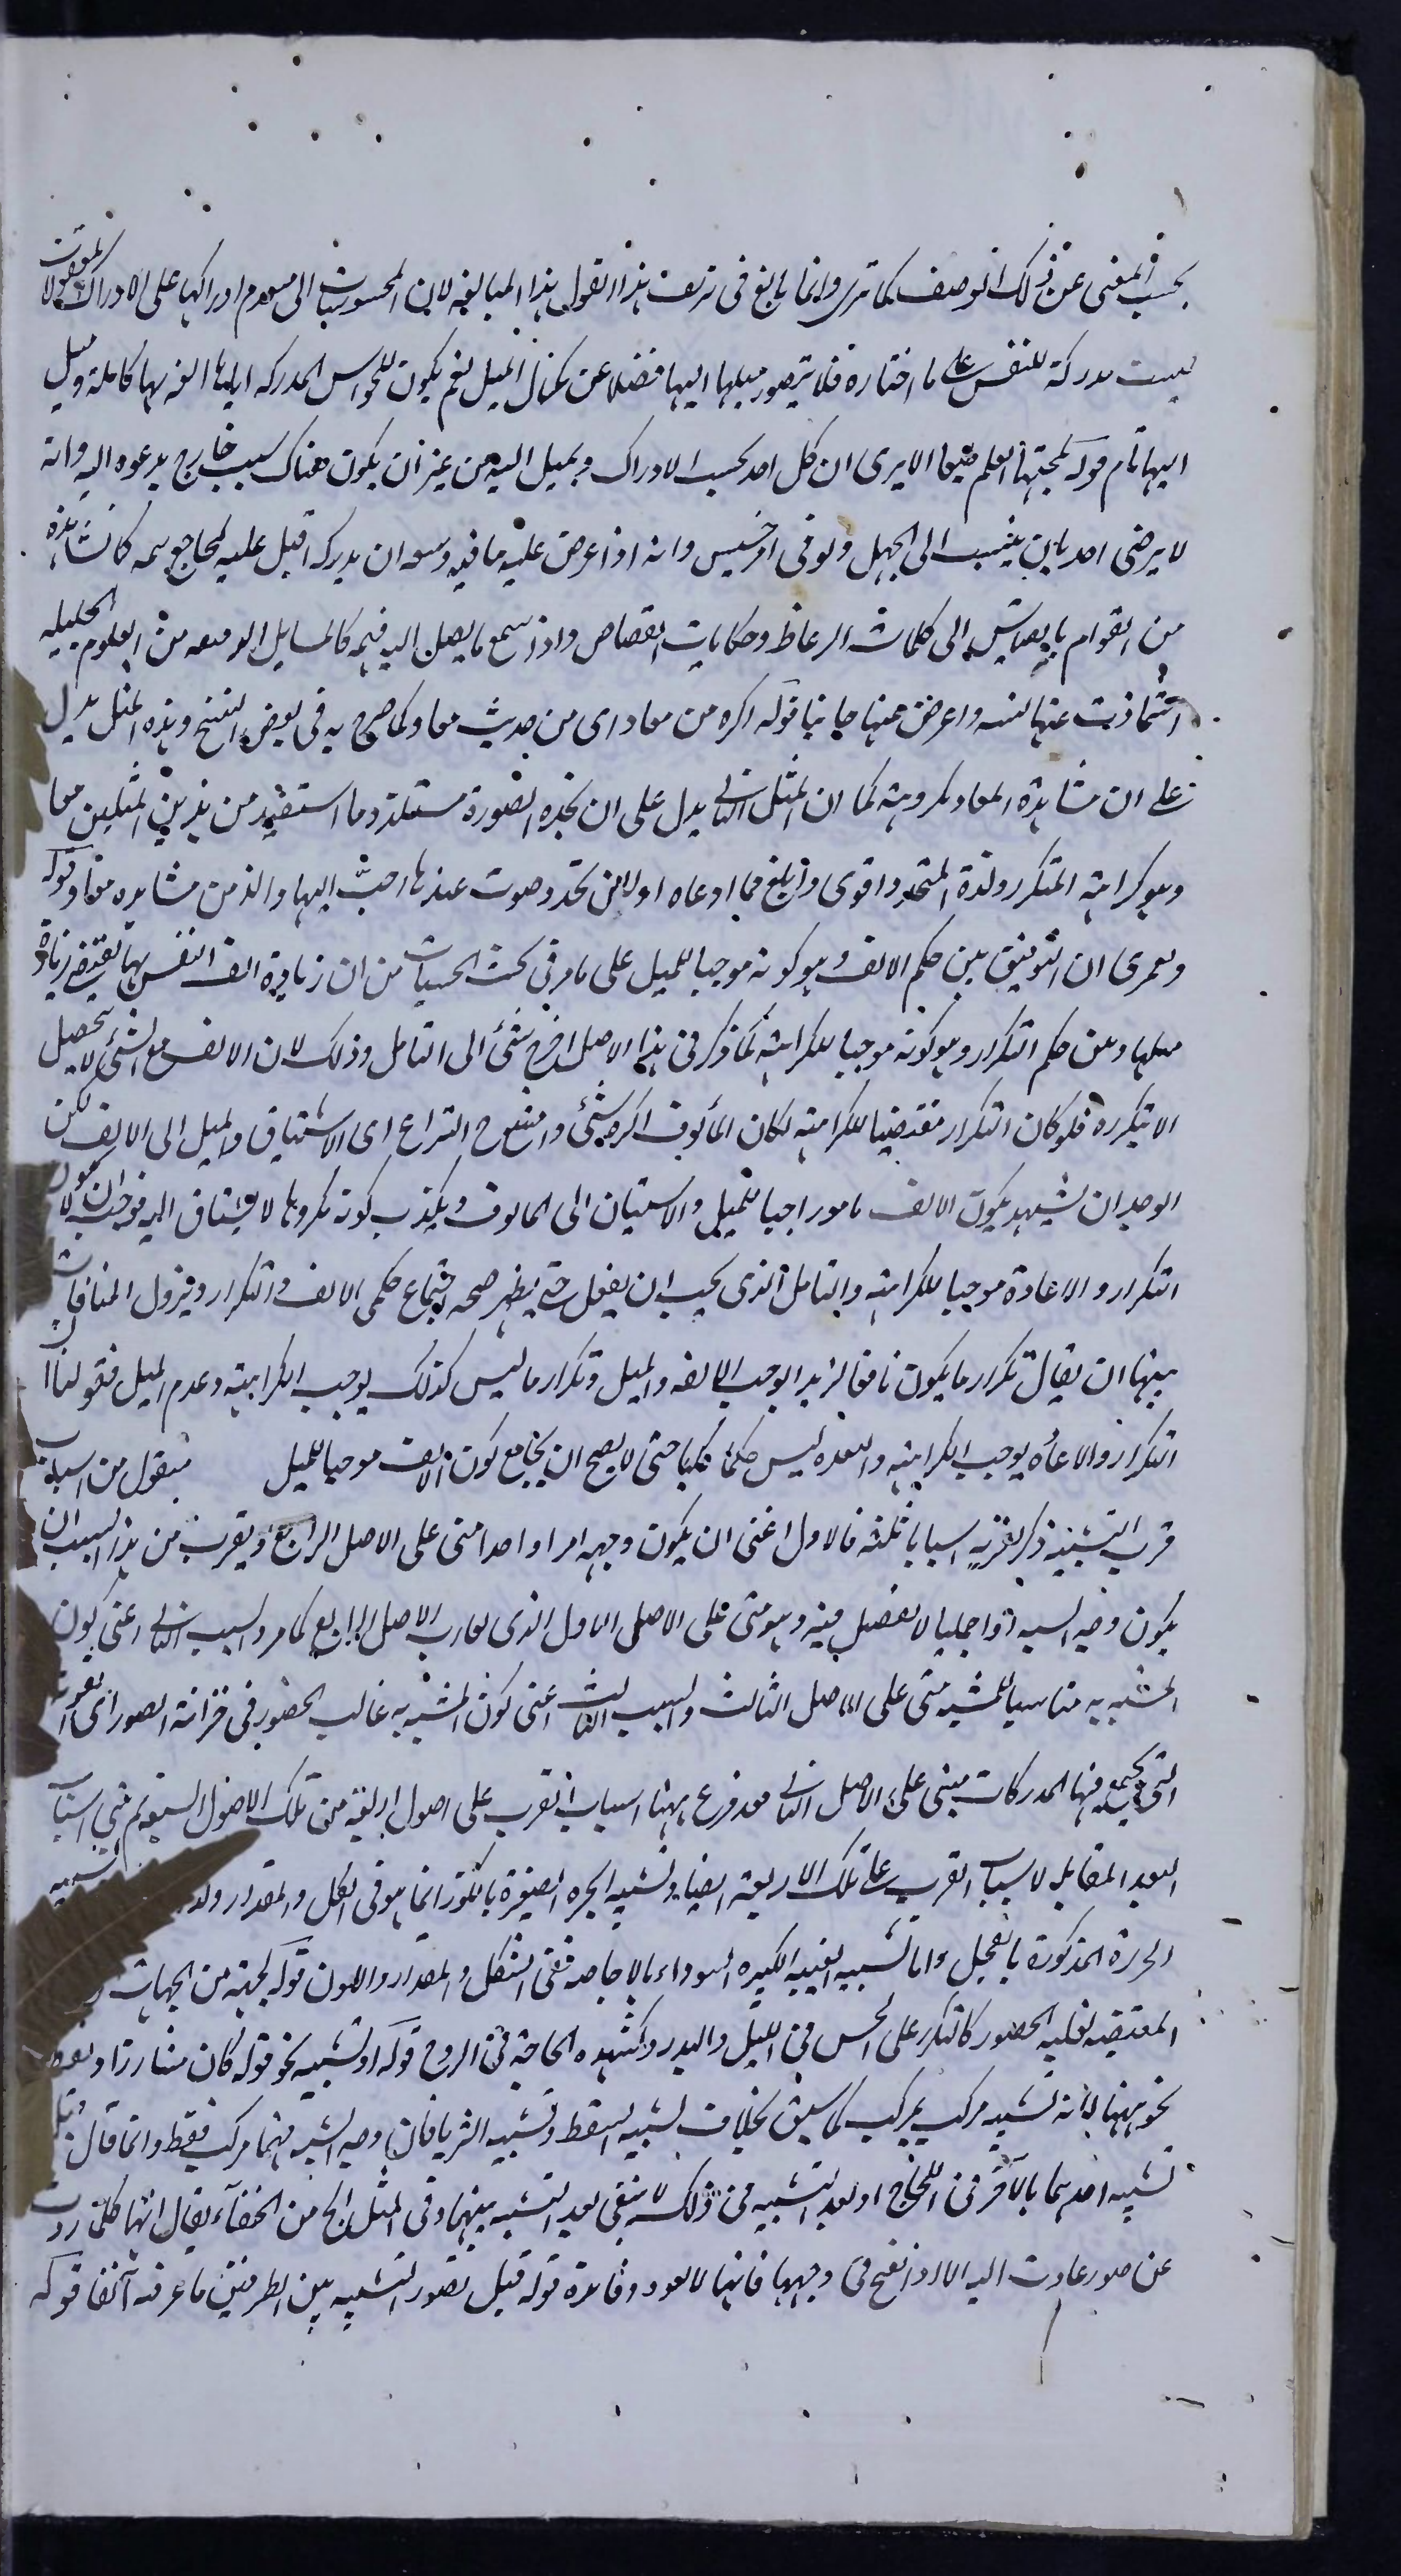 بحسب المعنى عن ذلك الوصف كما ترى وانما بالغ فى تزيف هذا القول هذا المبالغه لان المحسوسات الى ادراكها على الادراك المعقولات
ليست مدركة للنفس على ما اختاره فلا يتصور ميلها اليها فضلا عن كمال الميل نعم يكون للحواس المدركه اياها الف بها كاملة وميل
اليها تام قوله لمحبتها العلم طبعا الا يرى ان كل احد يحب الادراك ويميل اليه من غير ان يكون هناك سبب خارج يدعوه اليه وانه
لا يرضى احد بان ينسب الى الجهل ولو فى امر خسيس وانه اذا عرض عليه ما فيه وسعه ان يدركه اقبل عليه بمجامع سمعه كما نشاهده
من القوام بالقياس الى كلمات الوعاظ وحكايات القصاص واذا سمع ما يصل اليه فهمه كالمسايل من العلوم الجليله
اشمأزت عنها نفسه واعرض عنها جانبا قوله اكره من معاد اى من حديث معاد كما صرح به فى بعض النسخ وهذه المثل يدل
على ان مشاهدة المعاد مكروهة كما ان المثل الثانى يدل على ان هذه الصورة مستلذه وما استفيد من هذين المثلين معا
وهو كراهية المتكرر ولذة المتجدد اقوى وابلغ مما ادعاه اولا من تجدد صوت عندها احب اليها والذ من مشاهده معاد قوله
ولعمرى ان التوفيق بين حكم الالف وهو كونه موجبا للميل على ما مر فى بحث الحسيات من ان زيادة الف النفس بها يقتضى زيادة
ميلها وبين حكم التكرار وهو كونه موجبا للكراهية كما ذكر فى هذا الاصل احوج شئ الى التامل وذلك لان الالف مع الشئ لا يحصل
الا بتكرره فلو كان التكرار مقتضيا للكراهية لكان المألوف اكره شئ وامتنع النزاع اى الاشتياق والميل الى الالف لكن
الوجدان يشهد بكون الالف موجبا للميل والاشتياق الى المالوف ويكذب كونه مكروها لا يشتاق اليه فوجب ان لا يكون
التكرار والاعادة موجبا للكراهية والتامل الذى يجب ان يفعل حتى يظهر صحه اجتماع حكمى الالف والتكرار ويزول المنافات
بينهما ان يقال تكرار ما يكون نافعا لذيذا يوجب الالفه والميل وتكرار ما ليس كذلك يوجب الكراهية وعدم الميل فقولنا
التكرار والاعاده يوجب الكراهية ليس حكما كليا حتى لا يصح ان يجامع كون الالف موجبا للميل فيقول من اسباب
قرب التشبيه ذكر لقربه اسبابا ثلثه فالاول اعنى ان يكون وجهه امرا واحدا مبنى على الاصل الرابع ويقرب من هذا السبب ان
يكون وجه الشبه امرا جمليا لا تفصيل فيه وهو مبنى على الاصل الاول الذى يقارب الاصل الرابع كما مر والسبب الثانى اعنى كون
المشبه به مناسبا للمشبه مبنى على الاصل الثالث والسبب الثالث اعنى كون المشبه به غالب الحضور فى خزانة الصور اى القوة
التى يجمع فيها المدركات مبنى على الاصل الثانى فقد فرع ههنا اسباب القرب على اصول اربعة من تلك الاصول السبعة ثم بنى اسباب
البعد المقابله لاسباب القرب على تلك الاربعة ايضا وتشبيه الجره الصغيرة بالكوز انما هو فى الشكل والمقدار
الجره المذكورة بالفجل واما تشبيه العنبة الكبيره السوداء بالاجاصه ففى الشكل والمقدار واللون قوله لجهة من الجهات
المقتضيه لغلبه الحضور كالتكرر على الحس فى الليل والبدر وكشده الحاجة فى الروح قوله او تشبيه نحو قوله كان مثار
نحو ههنا لانه تشبيه مركب بمركب كما سبق بخلاف تشبيه السقط وتشبيه الثريا فان وجه الشبه فيهما مركب فقط وانما قال
تشبيه احدهما بالآخر فى اللجاج او بعد التشبيه فى ذلك لا ينبغى بعد التشبه بينهما وفى المثل الج من الخنفساء يقال انها كلما ردت
عن صور عادت اليه قوله قبل تصور التشبيه بين الطرفين ما عرفته آنفا قوله